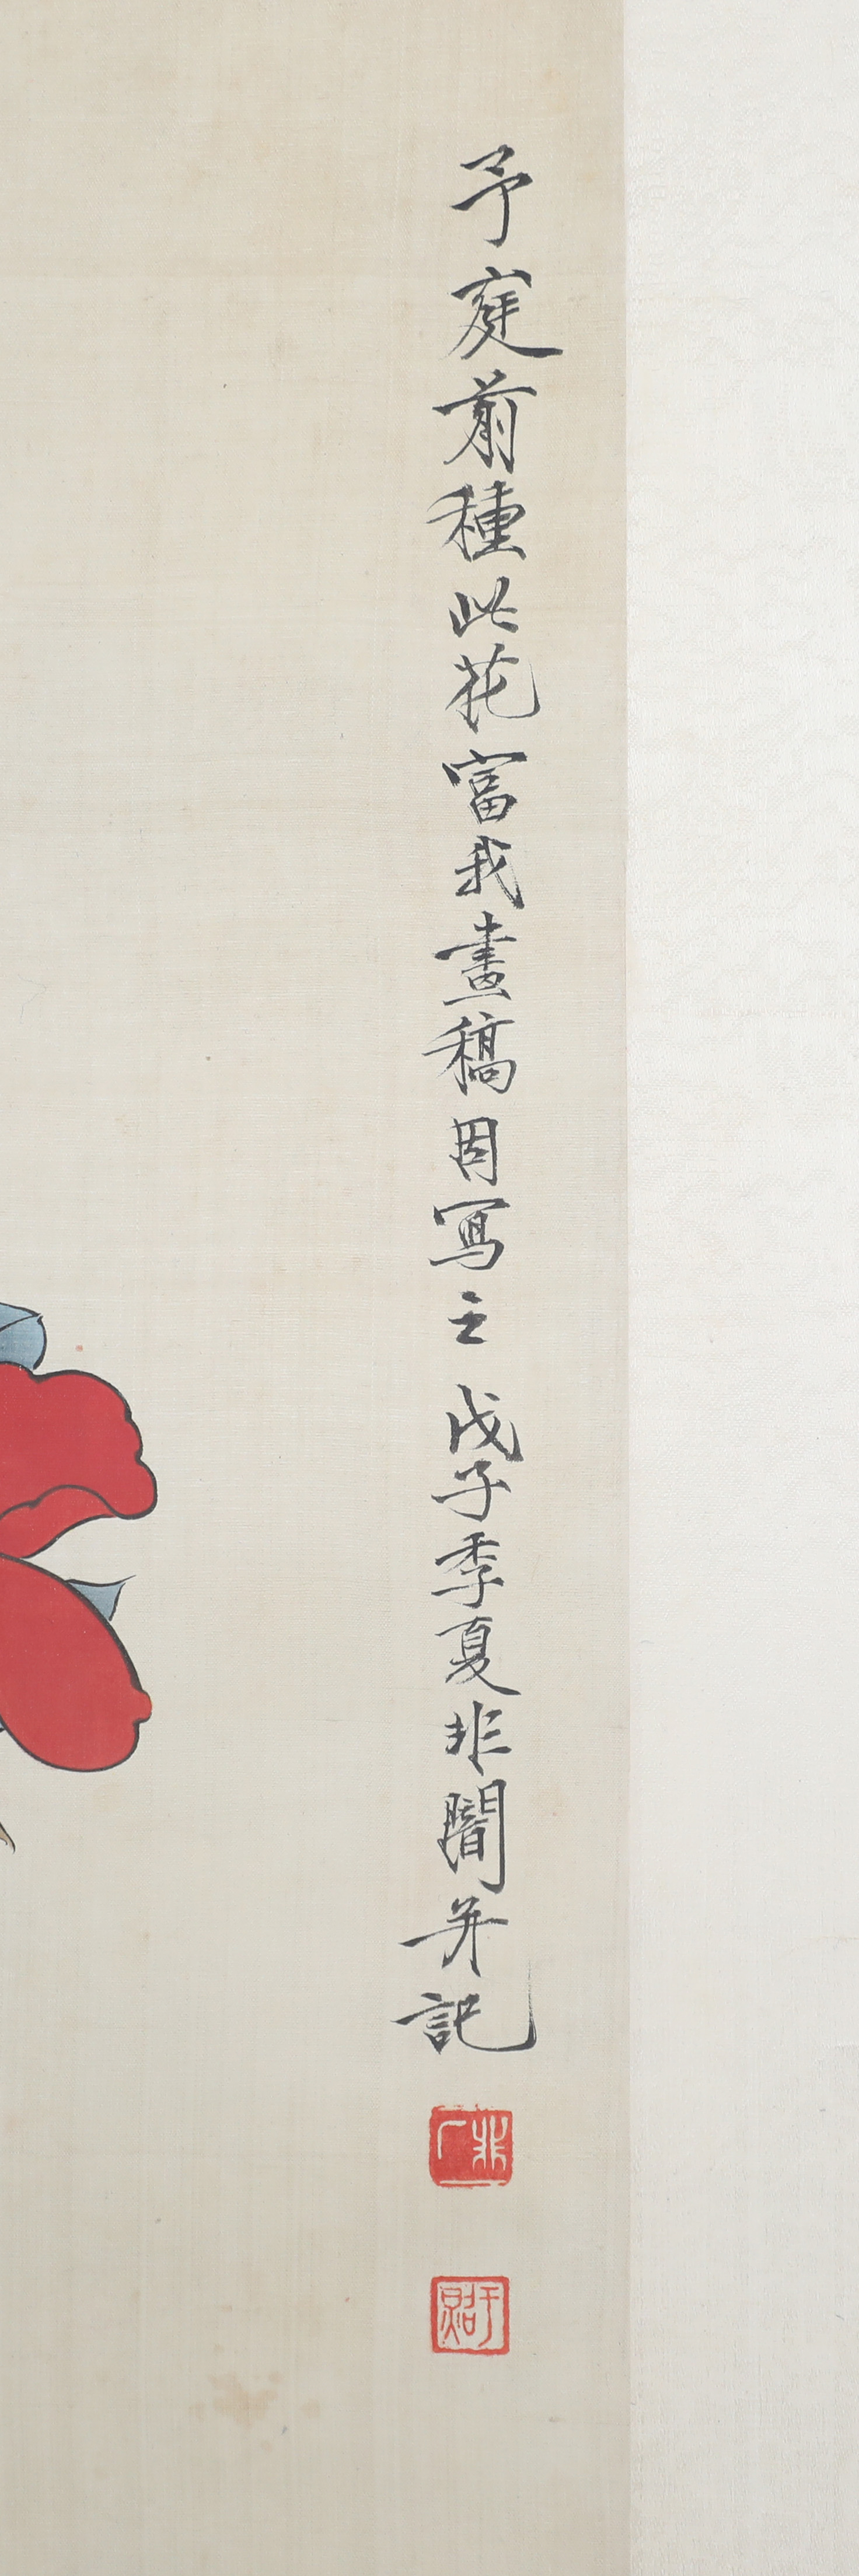 予庭前種此花富我畫稿因寫之 戊子季夏非闇并記
非厂
于照